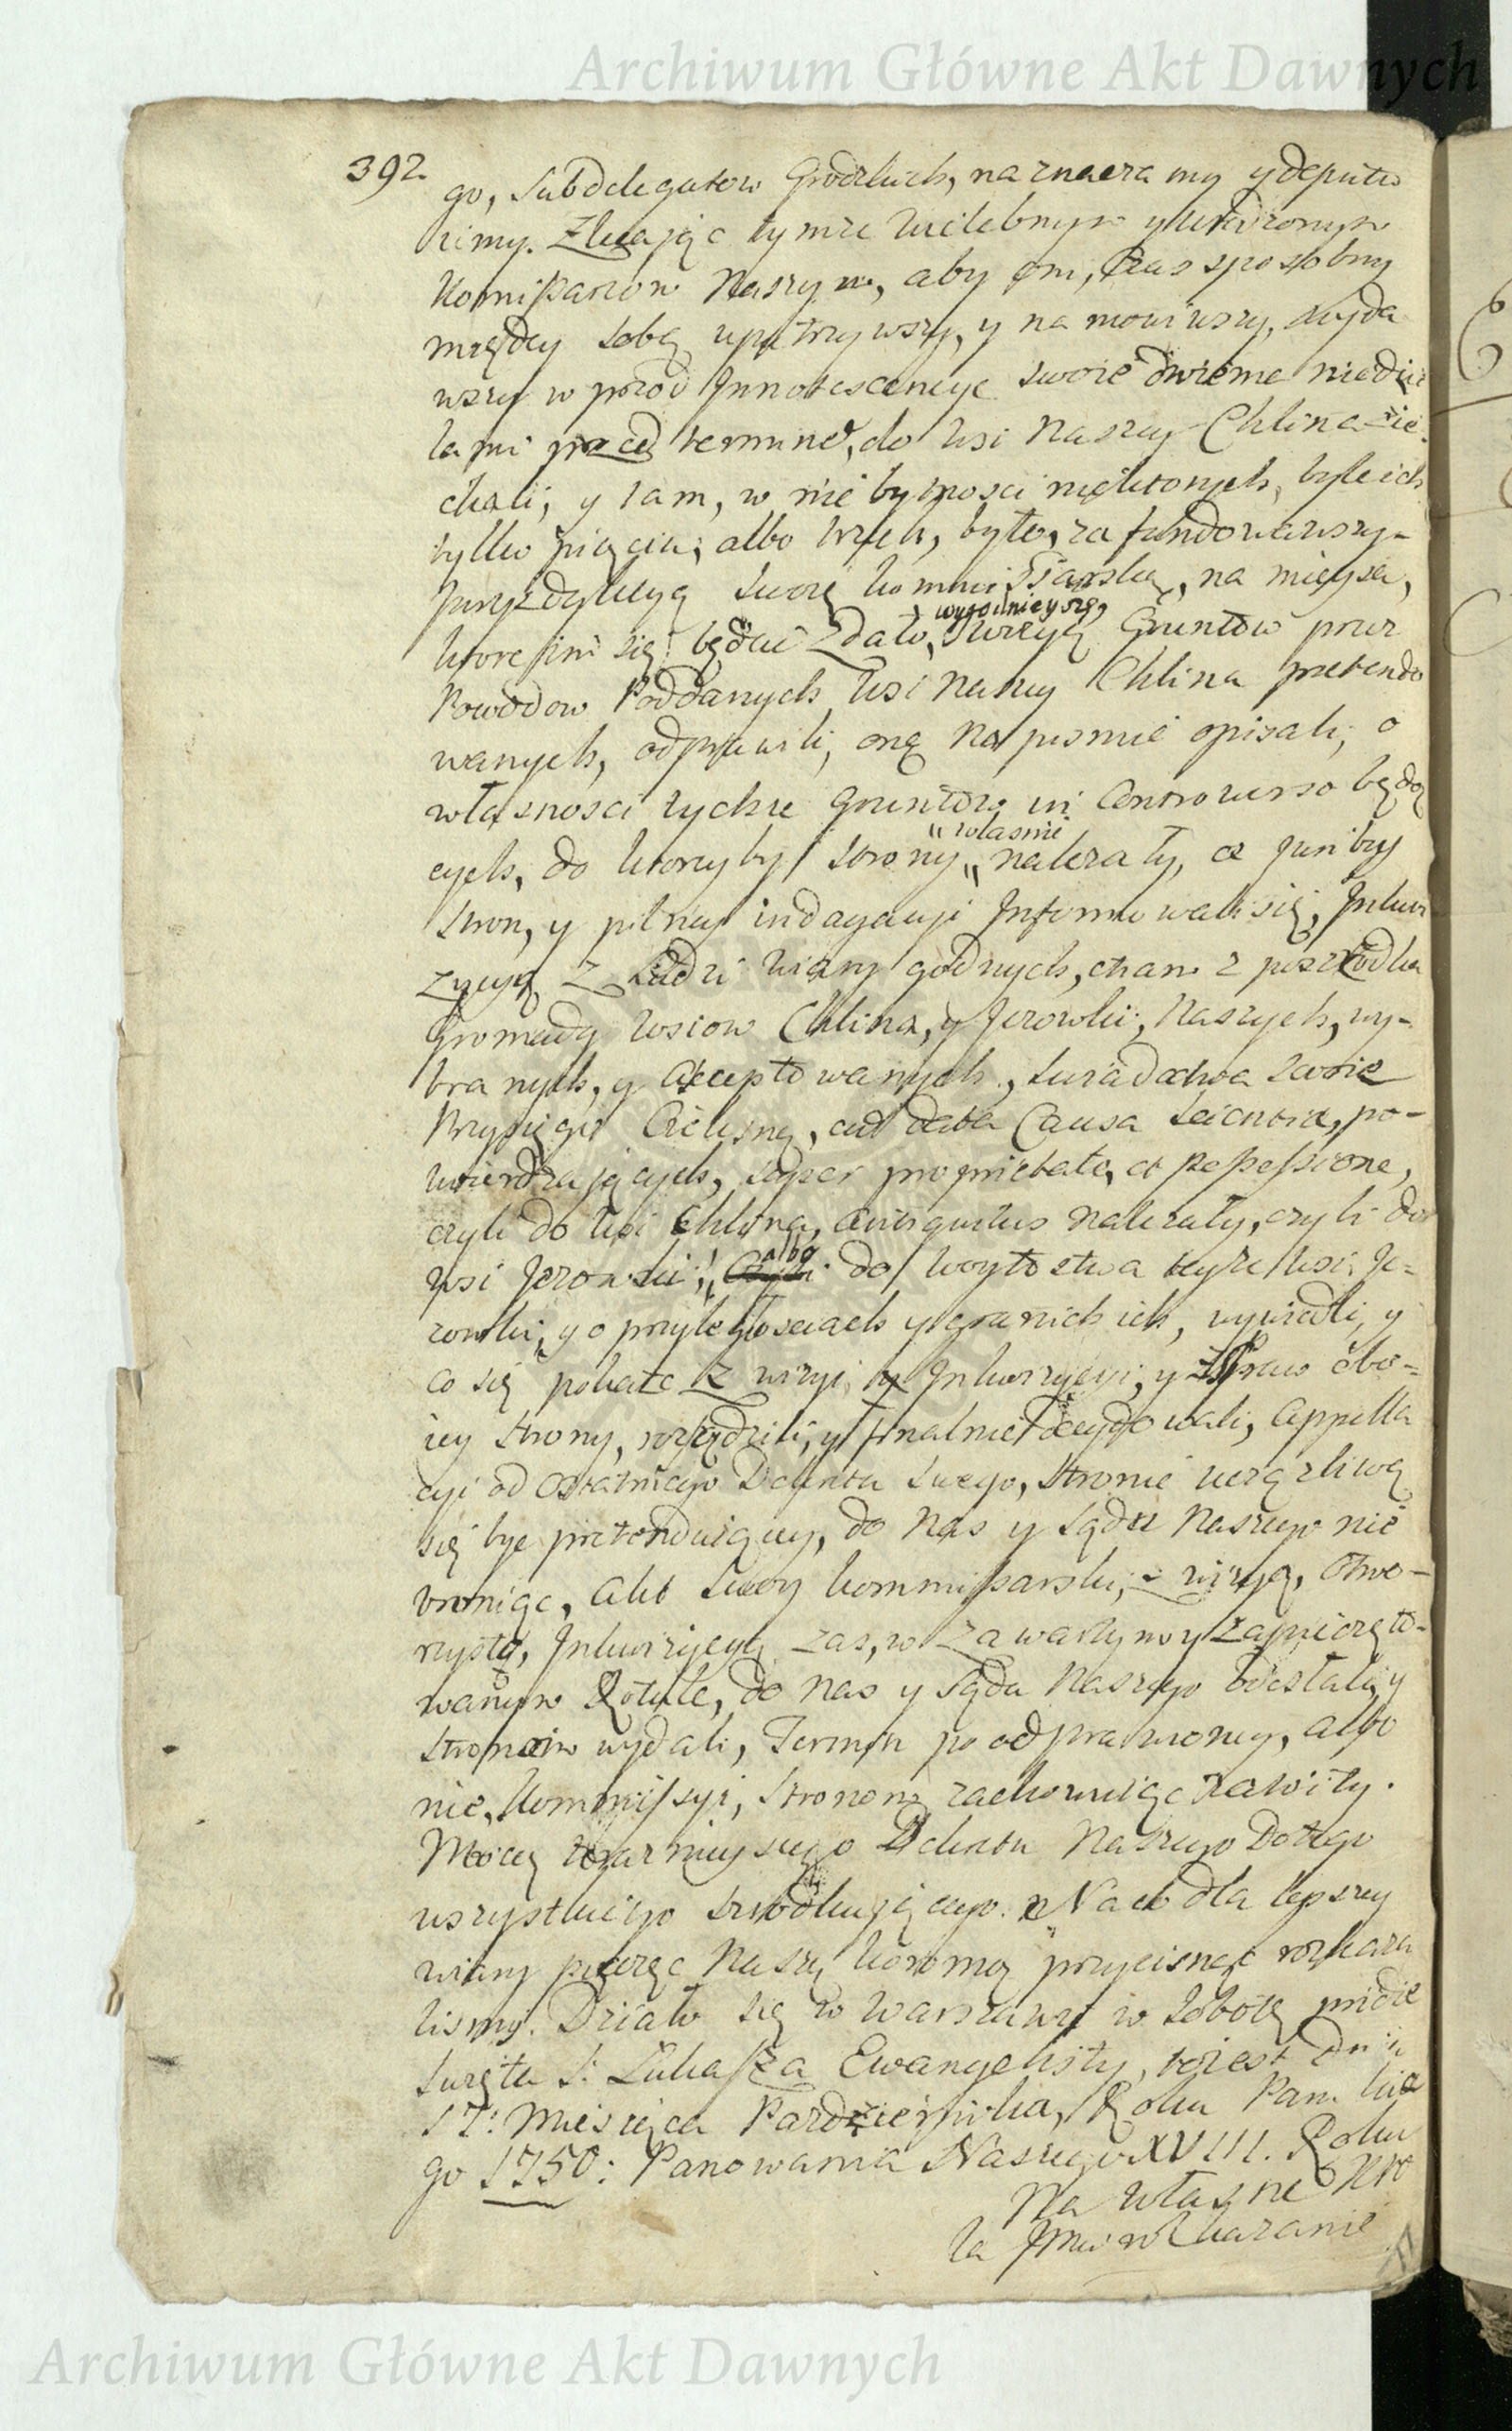 Archiwum Główne Akt Dawnych
392.
go, Subdelegatow Grodzkich, naznaczamy y deputu
iemy. Zlecając tymże Wielebnym y Urodzonym
Kommissarzom Naszym, aby oni, Czas sposobny
między sobą upatrzywszy, y namowiwszy, wyda
wszy w przod Innotescencye swoie dwiema niedzie
lami przed terminẽ, do Wsi Naszey Chlina zie-
chali, y tam, w niebytnosci niektorych, byle ich
tylko pięciu, albo trzech, było, zafundowawszy-
Juryzdykcyą swoię kommissarską, na mieyscu,
ktore im się będzie zdało, wygodnieysze, Wizyą Gruntow przez
Powodow Poddanych Wsi Naszey Chlina pretendo
wanych, odprawili, onę na pismie opisali, o
własnosci tychże Gruntow in Controverso będą
cych, do ktoryby Strony " własnie " należały, ex Juribus
Stron, y pilney indagacyi Informowali się, Inkwi
zycyą z Ludzi wiary godnych, etiam z poszrodka
Gromady Wsiow Chlina, y Jezowki, Naszych, wy-
branych, y Akceptowanych, Swiadectwa swoie
Przysięgą Cielesną, cum data Causa Scientiæ, po-
twierdzaiących, super proprietate, et possessione,
czyli do Wsi Chlina, antiquitus należały, czyli do
Wsi Jezowki, albo do Woytostwa teyże Wsi Je-
zowki, y o przyległosciach y granicach ich, wywiedli, y
co się pokaże z wizyi, y Inkwizycyi, y z Praw obo-
iey Strony, rozsądzili, y finalnie decydowali, Appella
cyi od Ostatniego Dekretu swego, Stronie uciążliwą
się być pretenduiącey, do Nas y Sądu Naszego nie
broniąc, Akt swoy kommissarski, z wizyą, otwo-
rzystą, Inkwizycyą zas, w zawartym y zapieczęto-
wanym Rotule, do Nas y Sądu Naszego odesłali, y
Stronom wydali, Termin po odprawioney, albo
nie, Kommissyi, Stronom zachowuiąc zawity.
Mocą teraznieyszego Dekretu Naszego do tego
wszystkiego Szrodkuiącego. Na co dla lepszey
wiary pieczęć Naszą koronną przycisnąć rozkaza
lismy. Działo się w Warszawie w Sobotę pridie
Swięta S: Łukasza Ewangelisty, to iest Dnia
17: Miesiąca Pazdziernika, Roku Pańskie
go 1750: Panowania Naszego XVIII. Roku
Na własne Kro
la Jmci rozkazanie
Archiwum Główne Akt Dawnych